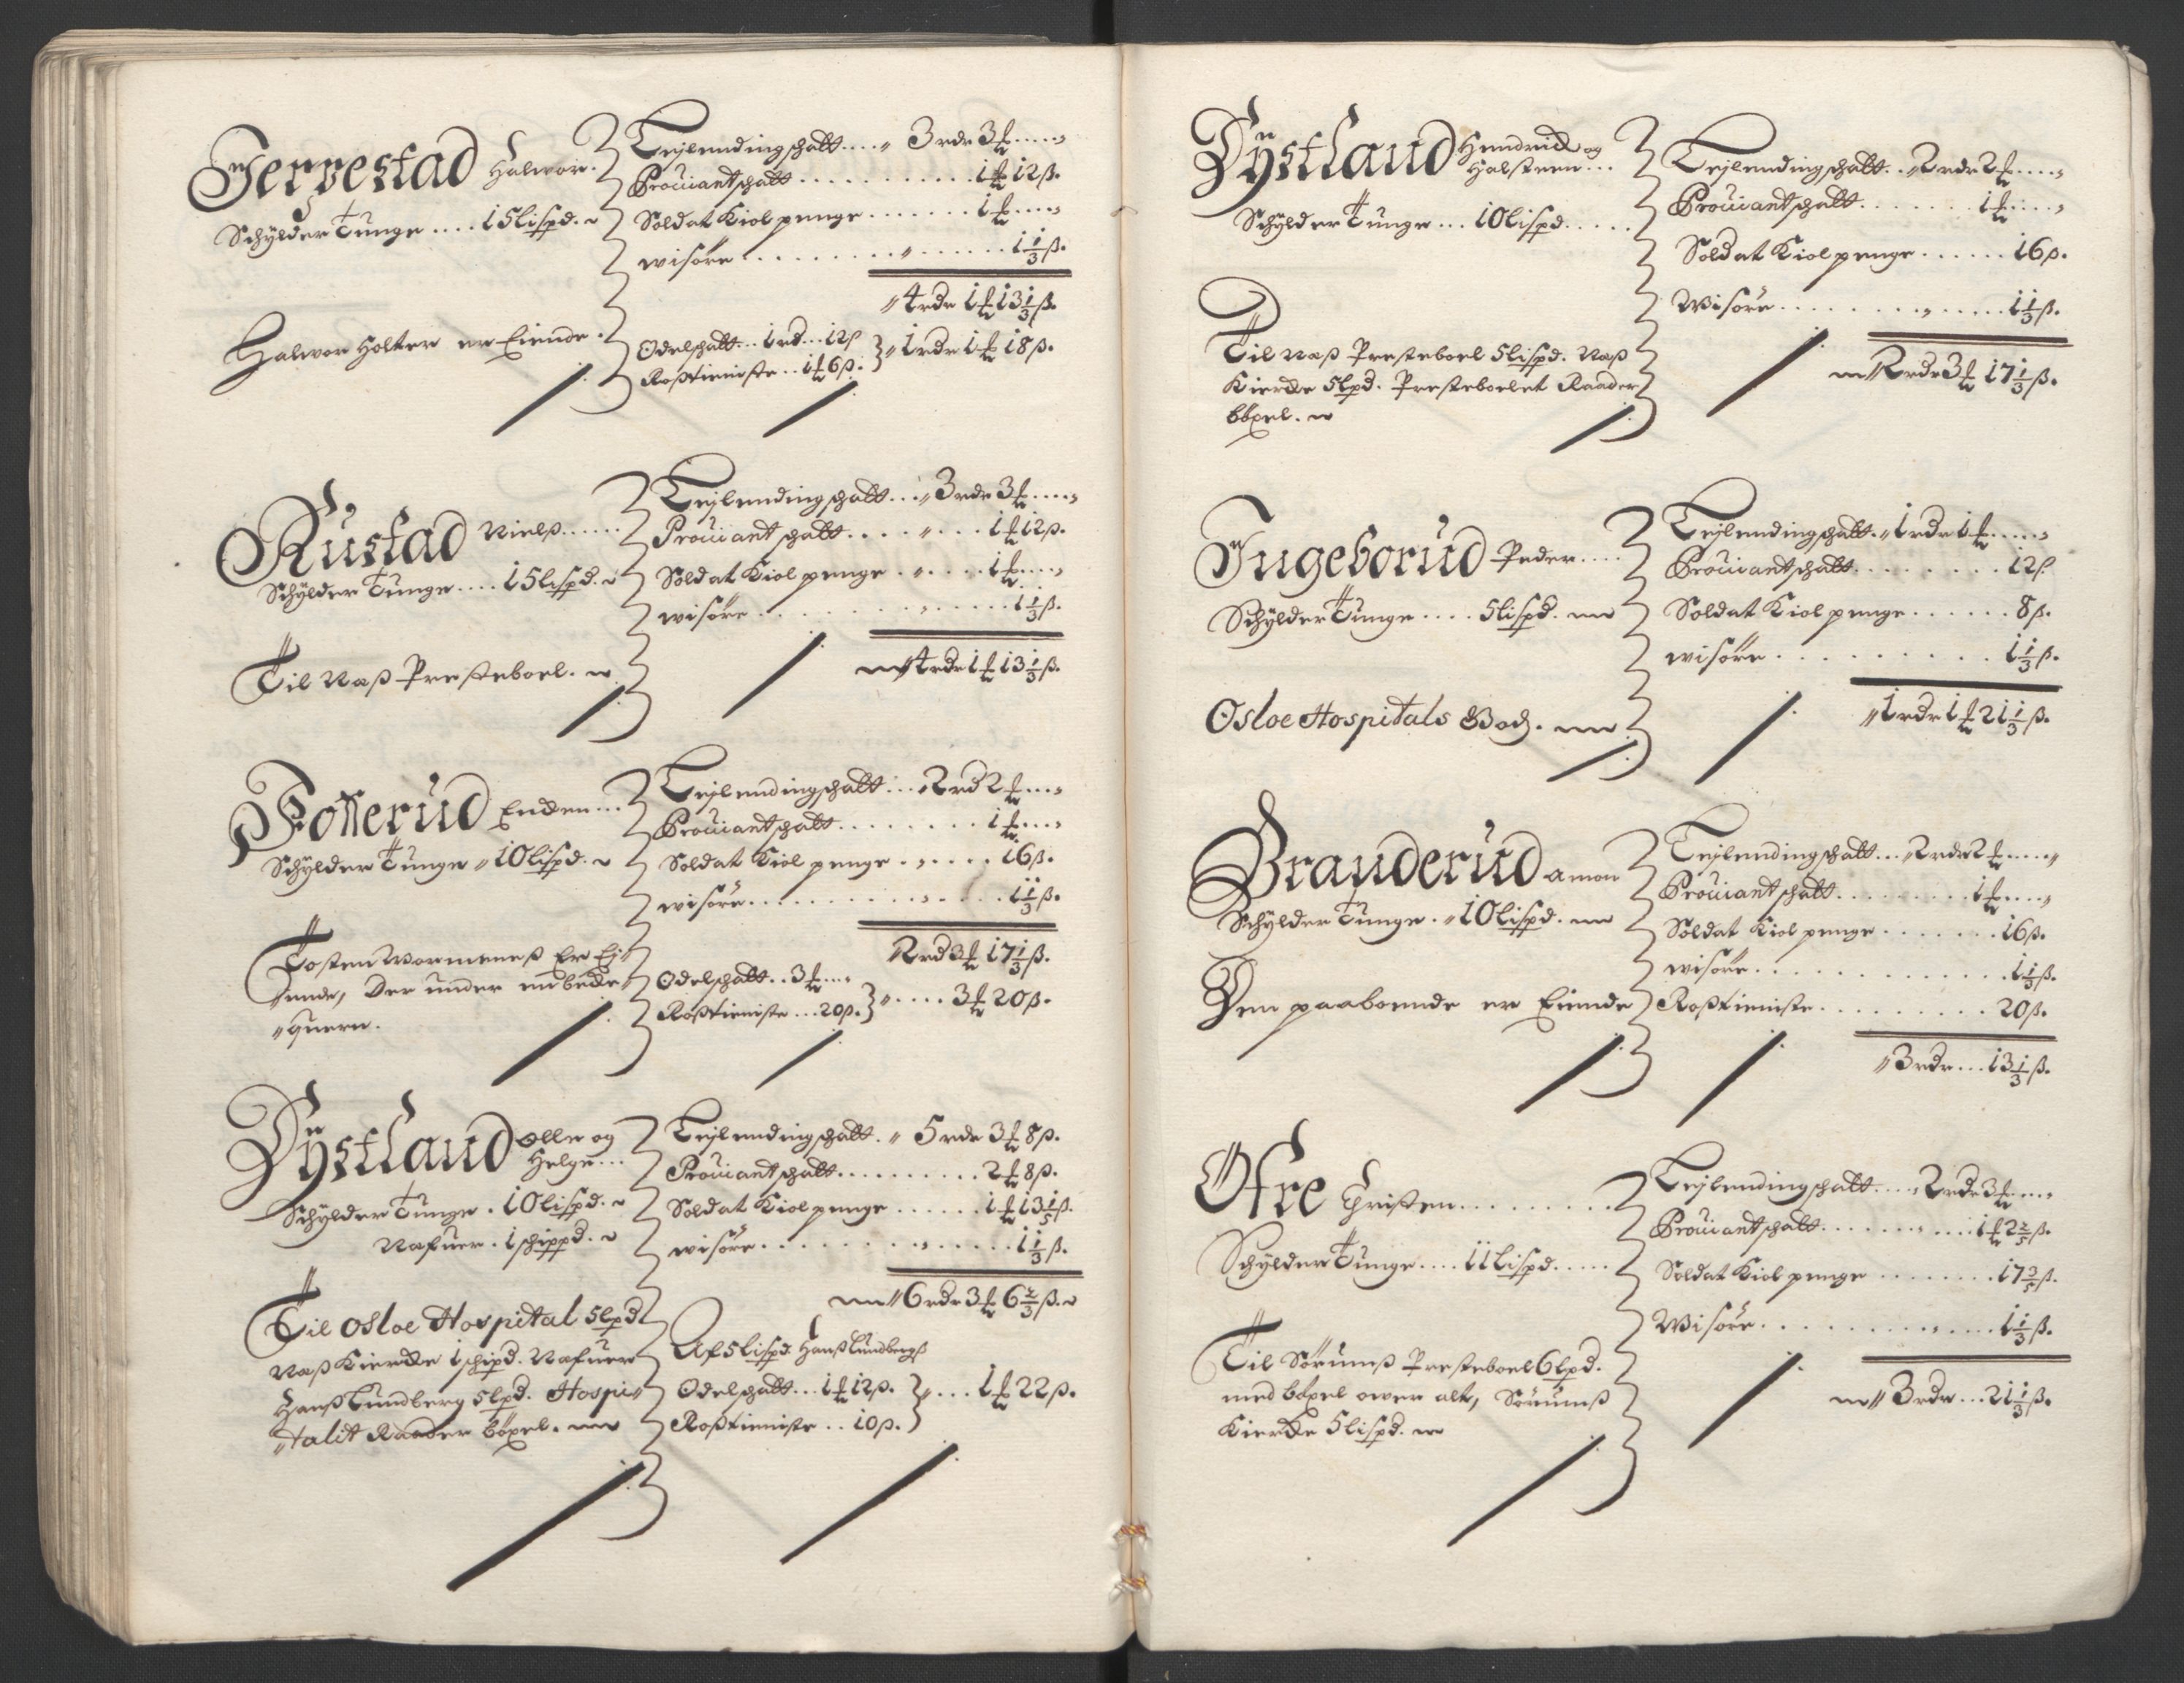 Jervestad Halvor.
Schÿlder Tunge .... 15 lispd.
Halvor Holter er Eiende.
Leylendingschatt .... 3 rdr 3 ₤ ....
Proviantschatt ........... 1 ₤ 12 ß.
Soldat Kiol penge ....... 1 ₤ ....
wisøre ............... 1 1/3 ß.
4 rdr 1 ₤ 13 1/3 ß.
Odelschatt... 1 rd... 12 ß
Rostieniste .. 1 ₤ 6 ß. } 1 rdr 1 ₤ 18 ß.
Rustad Nielß ......
Schÿlder Tunge .... 15 lispd.
Til Naß Presteboel.
Leylendingschatt ... 3 rdr 3 ₤ ....
Proviantschatt ....... 1 ₤ 12 ß.
Soldat Kiol penge ...... 1 ₤ ....
wisøre ............... 1 1/3 ß.
4 rdr 1 ₤ 13 1/3 ß.
Fosserud Enden ...
Schÿlder Tunge 10 lispd.
Tosten Wormeneß Er Ej-
ende, Der under
quern.
Leylendingschatt ... 2 rd 2 ₤ ...
Proviantschatt ......... 1 ₤ ....
Soldat Kiol penge ...... 16 ß.
wisøre ............... 1 1/3 ß.
2 rd 3 ₤ 17 1/3 ß.
Odelschatt .. 3 ₤ ....
Rostieniste ... 20 ß. } .... 3 ₤ 20 ß.
Dÿstland Olle og
Helge ...
Schÿlder Tunge . 10 lispd.
Nafuer . 1 schippd.
Til Osloe Hospital 5 lpd
Naß Kierke 1 schipd. Nafuer
Hanß Lundberg 5 lpd. Hospi-
talit Raader böxel.
Leylendingschatt . 5 rdr 3 ₤ 8 ß.
Proviantschatt .......... 2 ₤ 8 ß.
Soldat Kiol penge ...... 1 ₤ 13 1/5 ß.
wisøre ............... 1 1/3 ß.
6 rdr 3 ₤ 6 2/3 ß.
Af 5 lispd. Hanß Lundbergß
Odelschatt ... 1 ₤ 12 ß.
Rostieniste .. 10 ß. } ... 1 ₤ 22 ß.
Dÿstland Hendrick og
Halsteen ...
Schÿlder Tunge ... 10 lispd .....
Til Naß Presteboel 5 lispd. Naß
Kierke 5 lpd. Presteboelet Raader
böxel.
Leylendingschatt .. 2 rdr 2 ₤ ....
Proviantschatt ....... 1 ₤ ....
Soldat Kiol penge ...... 16 ß.
Wisøre ............ 1 1/3 ß.
2 rdr 3 ₤ 17 1/3 ß.
Ingeborud Peder ....
Schÿlder Tunge .... 5 lispd.
Osloe Hospitals Godz.
Leylendingschatt . 1 rdr 1 ₤ .....
Proviantschatt ......... 12 ß
Soldat Kiol penge ...... 8 ß.
wisøre ........... 1 1/3 ß.
1 rdr 1 ₤ 21 1/3 ß.
Branderud Amon
Schÿlder Tunge . 10 lispd.
Den paaboende er Eiende
Leylendingschatt ... 2 rdr 2 ₤ .....
Proviantschatt ......... 1 ₤ ....
Soldat Kiol penge ....... 16 ß.
wisøre ............. 1 1/3 ß.
Rostieniste .......... 20 ß.
3 rdr ... 13 1/3 ß.
Ofre Christen .........
Schÿlder Tunge .... 11 lispd .....
Til Sörumß Presteboel 6 lpd.
med böxel ower alt, Sörumß
Kierke 5 lispd.
Leylendingschatt ... 2 rdr 3 ₤ ....
Proviantschatt ......... 1 ₤ 2 2/5 ß.
Soldat Kiol penge ........ 17 3/5 ß.
Wisøre ............. 1 1/3 ß.
3 rdr ... 21 1/3 ß.